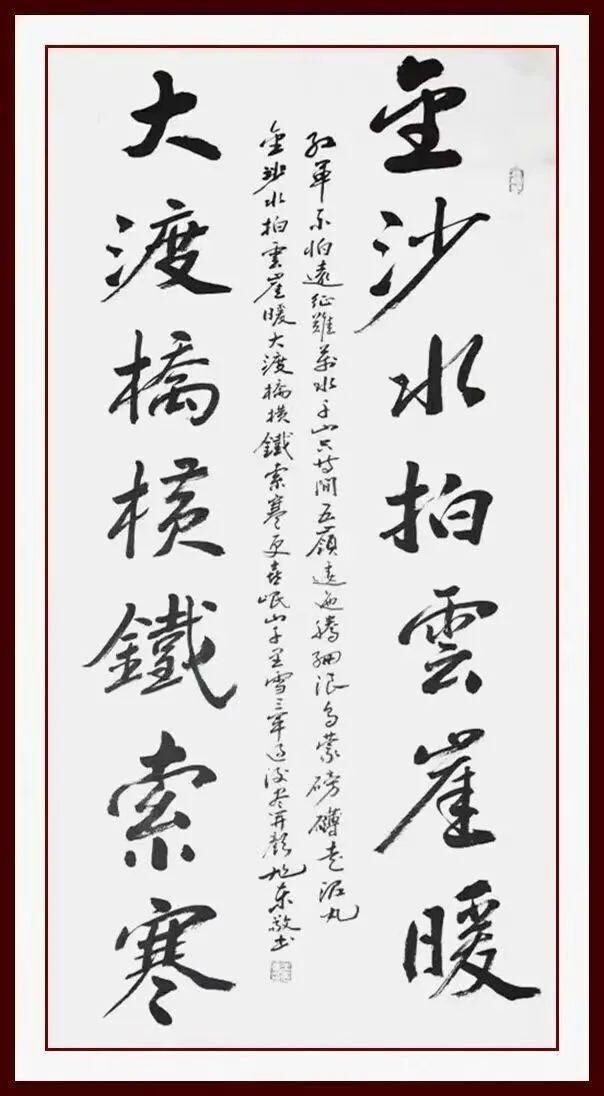 金沙水拍雲崖暖
紅軍不怕遠征難萬水千山只等閒五嶺逶迤騰細浪烏蒙磅礴走泥丸
金沙水拍雲崖暖大渡橋横鐵索寒更喜岷山千里雪三軍過後盡開顏旭東敬書
大渡橋横鐵索寒